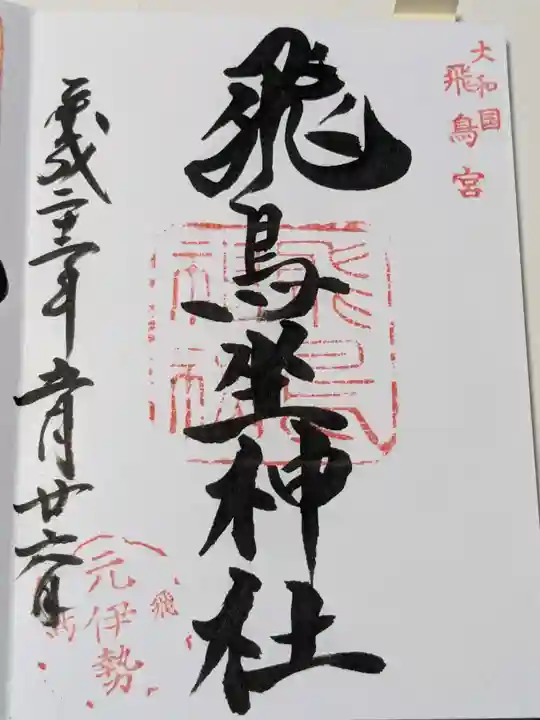 大和国
飛鳥宮
飛鳥坐神社
平成二十三年五月廿六日
元伊勢
飛